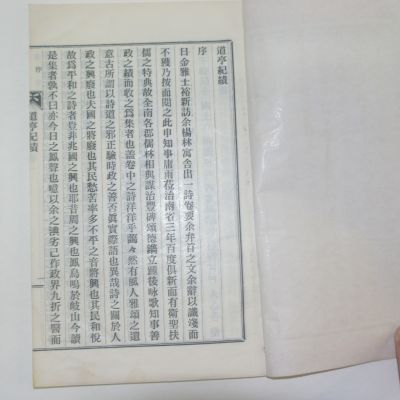 道亭紀績
序
日金雅士裕新訪余楊林寓舍出一詩卷裒余弁首之文余辭以識淺而
不獲乃按而閱之此申知事庸雨莅治南省三年百度俱新而有衛聖扶
儒之特典故全南各郡儒林相與謀治豐碑頌德鐫立踵後咏歌知事善
政之績而收之爲集者也盖卷中之詩洋洋乎藹々然有風人雅頌之遺
意古所謂以詩道之邪正驗時政之善否眞實際語也異哉詩之關於人
政之興廢也夫國之將廢也其民愁苦率多不平之音將興也其民和悅
故爲平和之詩者豈非兆國之興也耶昔周之興也鳳鳥鳴於岐山今讀
是集者孰不曰亦今日之鳳聲也噫以余之湙劣已作政界九折之醫而
序
道亭紀績